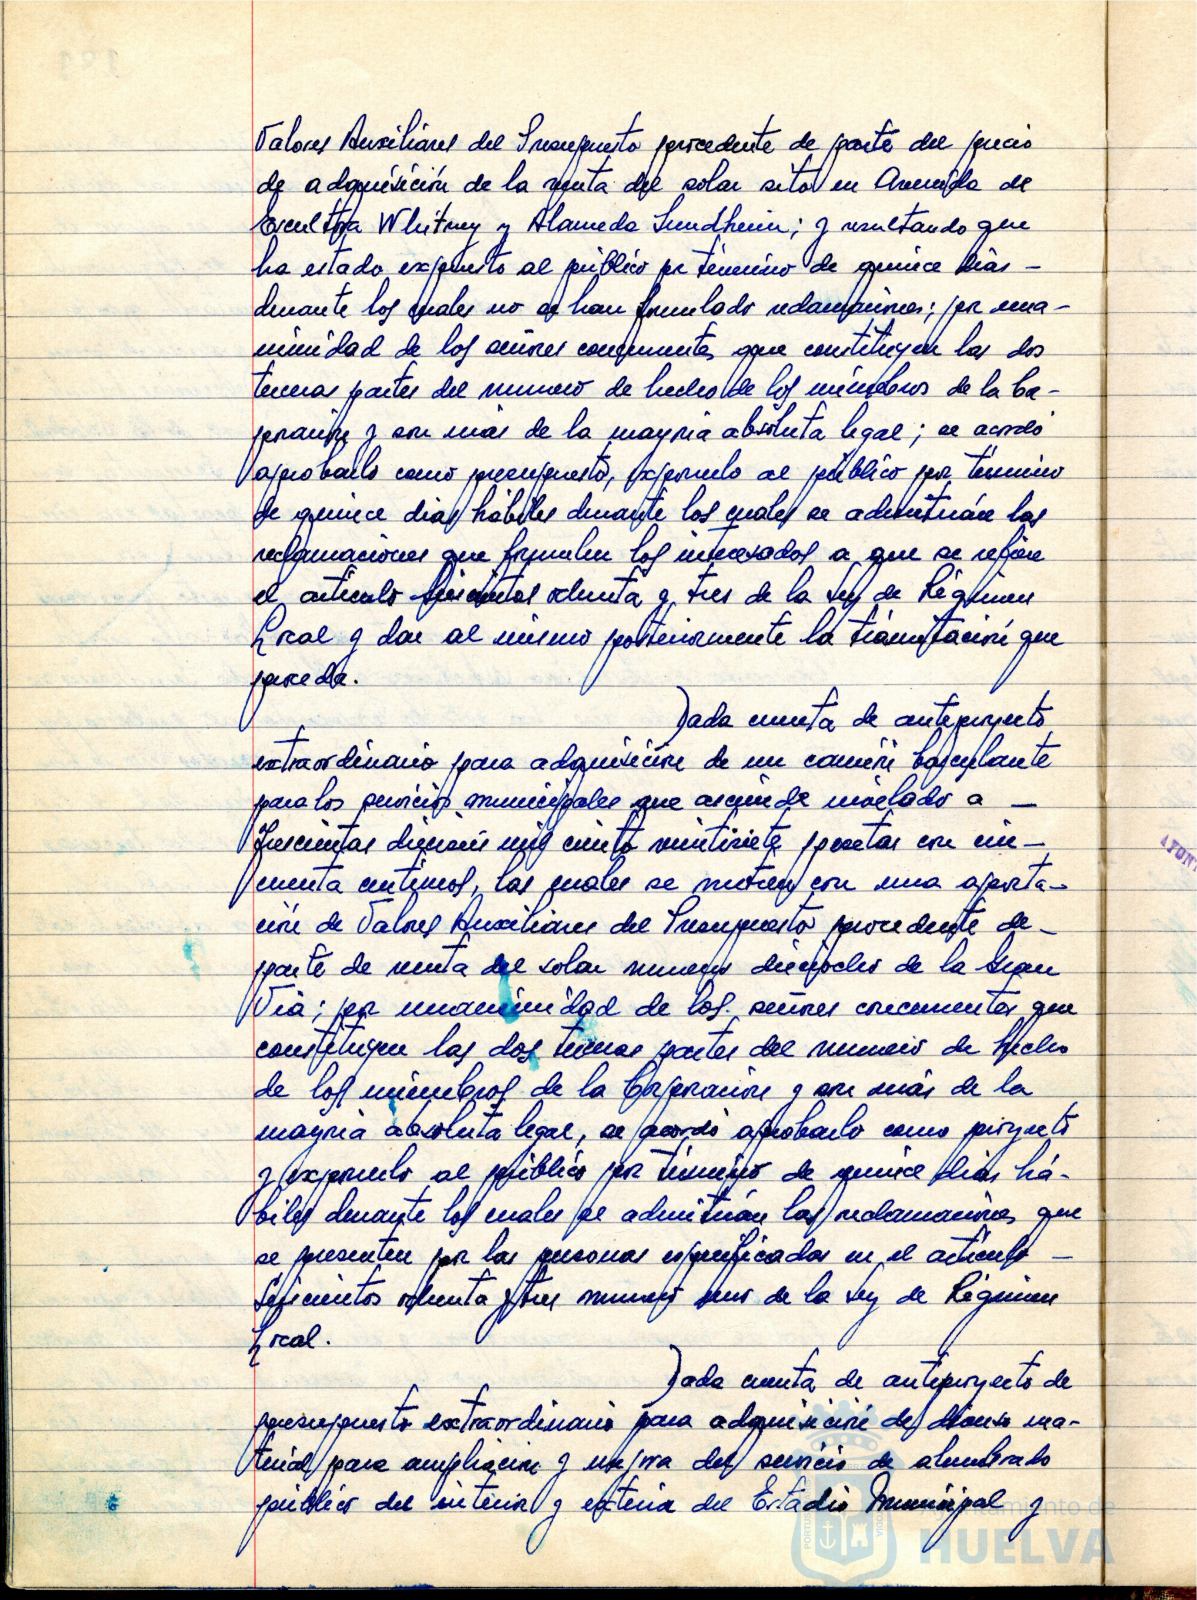 Valores Auxiliares del Presupuesto procedente de parte del precio
de adquisición de la venta del solar sito en Avenida de
Escultora Whitney y Alameda Sundheim; y resultando que
ha estado expuesto al público por término de quince dias -
durante los cuales no se han formulado reclamaciones; por una-
nimidad de los señores concurrentes que constituyen las dos
terceras partes del numero de hecho de los miembros de la Cor-
poración y son más de la mayoria absoluta legal; se acordó
aprobarlo como presupuesto, exponerlo al público por término
de quince dias hábiles durante los cuales se admitirán las
reclamaciones que formulen los interesados a que se refiere
el articulo seiscientos ochenta y tres de la Ley de Régimen
Local y dar al mismo posteriormente la tramitación que
proceda.
Dada cuenta de anteproyecto
extraordinario para adquisición de un camión basculante
para los servicios municipales que asciende nivelado a -
Trescientas dieciseis mil ciento veintisiete pesetas con cin-
cuenta centimos, las cuales se nutren con una aporta-
ción de Valores Auxiliares del Presupuesto procedente de -
parte de venta del solar numero dieciocho de la Gran
Via; por unanimidad de los señores concurrentes que
constituyen las dos terceras partes del numero de hecho
de los miembros de la Corporación y son más de la
mayoria absoluta legal, se acordó aprobarlo como proyecto
y exponerlo al público por término de quince dias há-
biles durante los cuales se admitirán las reclamaciones que
se presenten por las personas especificadas en el articulo -
Seiscientos ochenta y tres numero uno de la Ley de Régimen
Local.
Dada cuenta de anteproyecto de
presupuesto extraordinario para adquisición de diverso ma-
terial para ampliación y mejora del servicio de alumbrado
público del interior y exterior del Estadio Municipal y
Ayuntamiento de
HUELVA